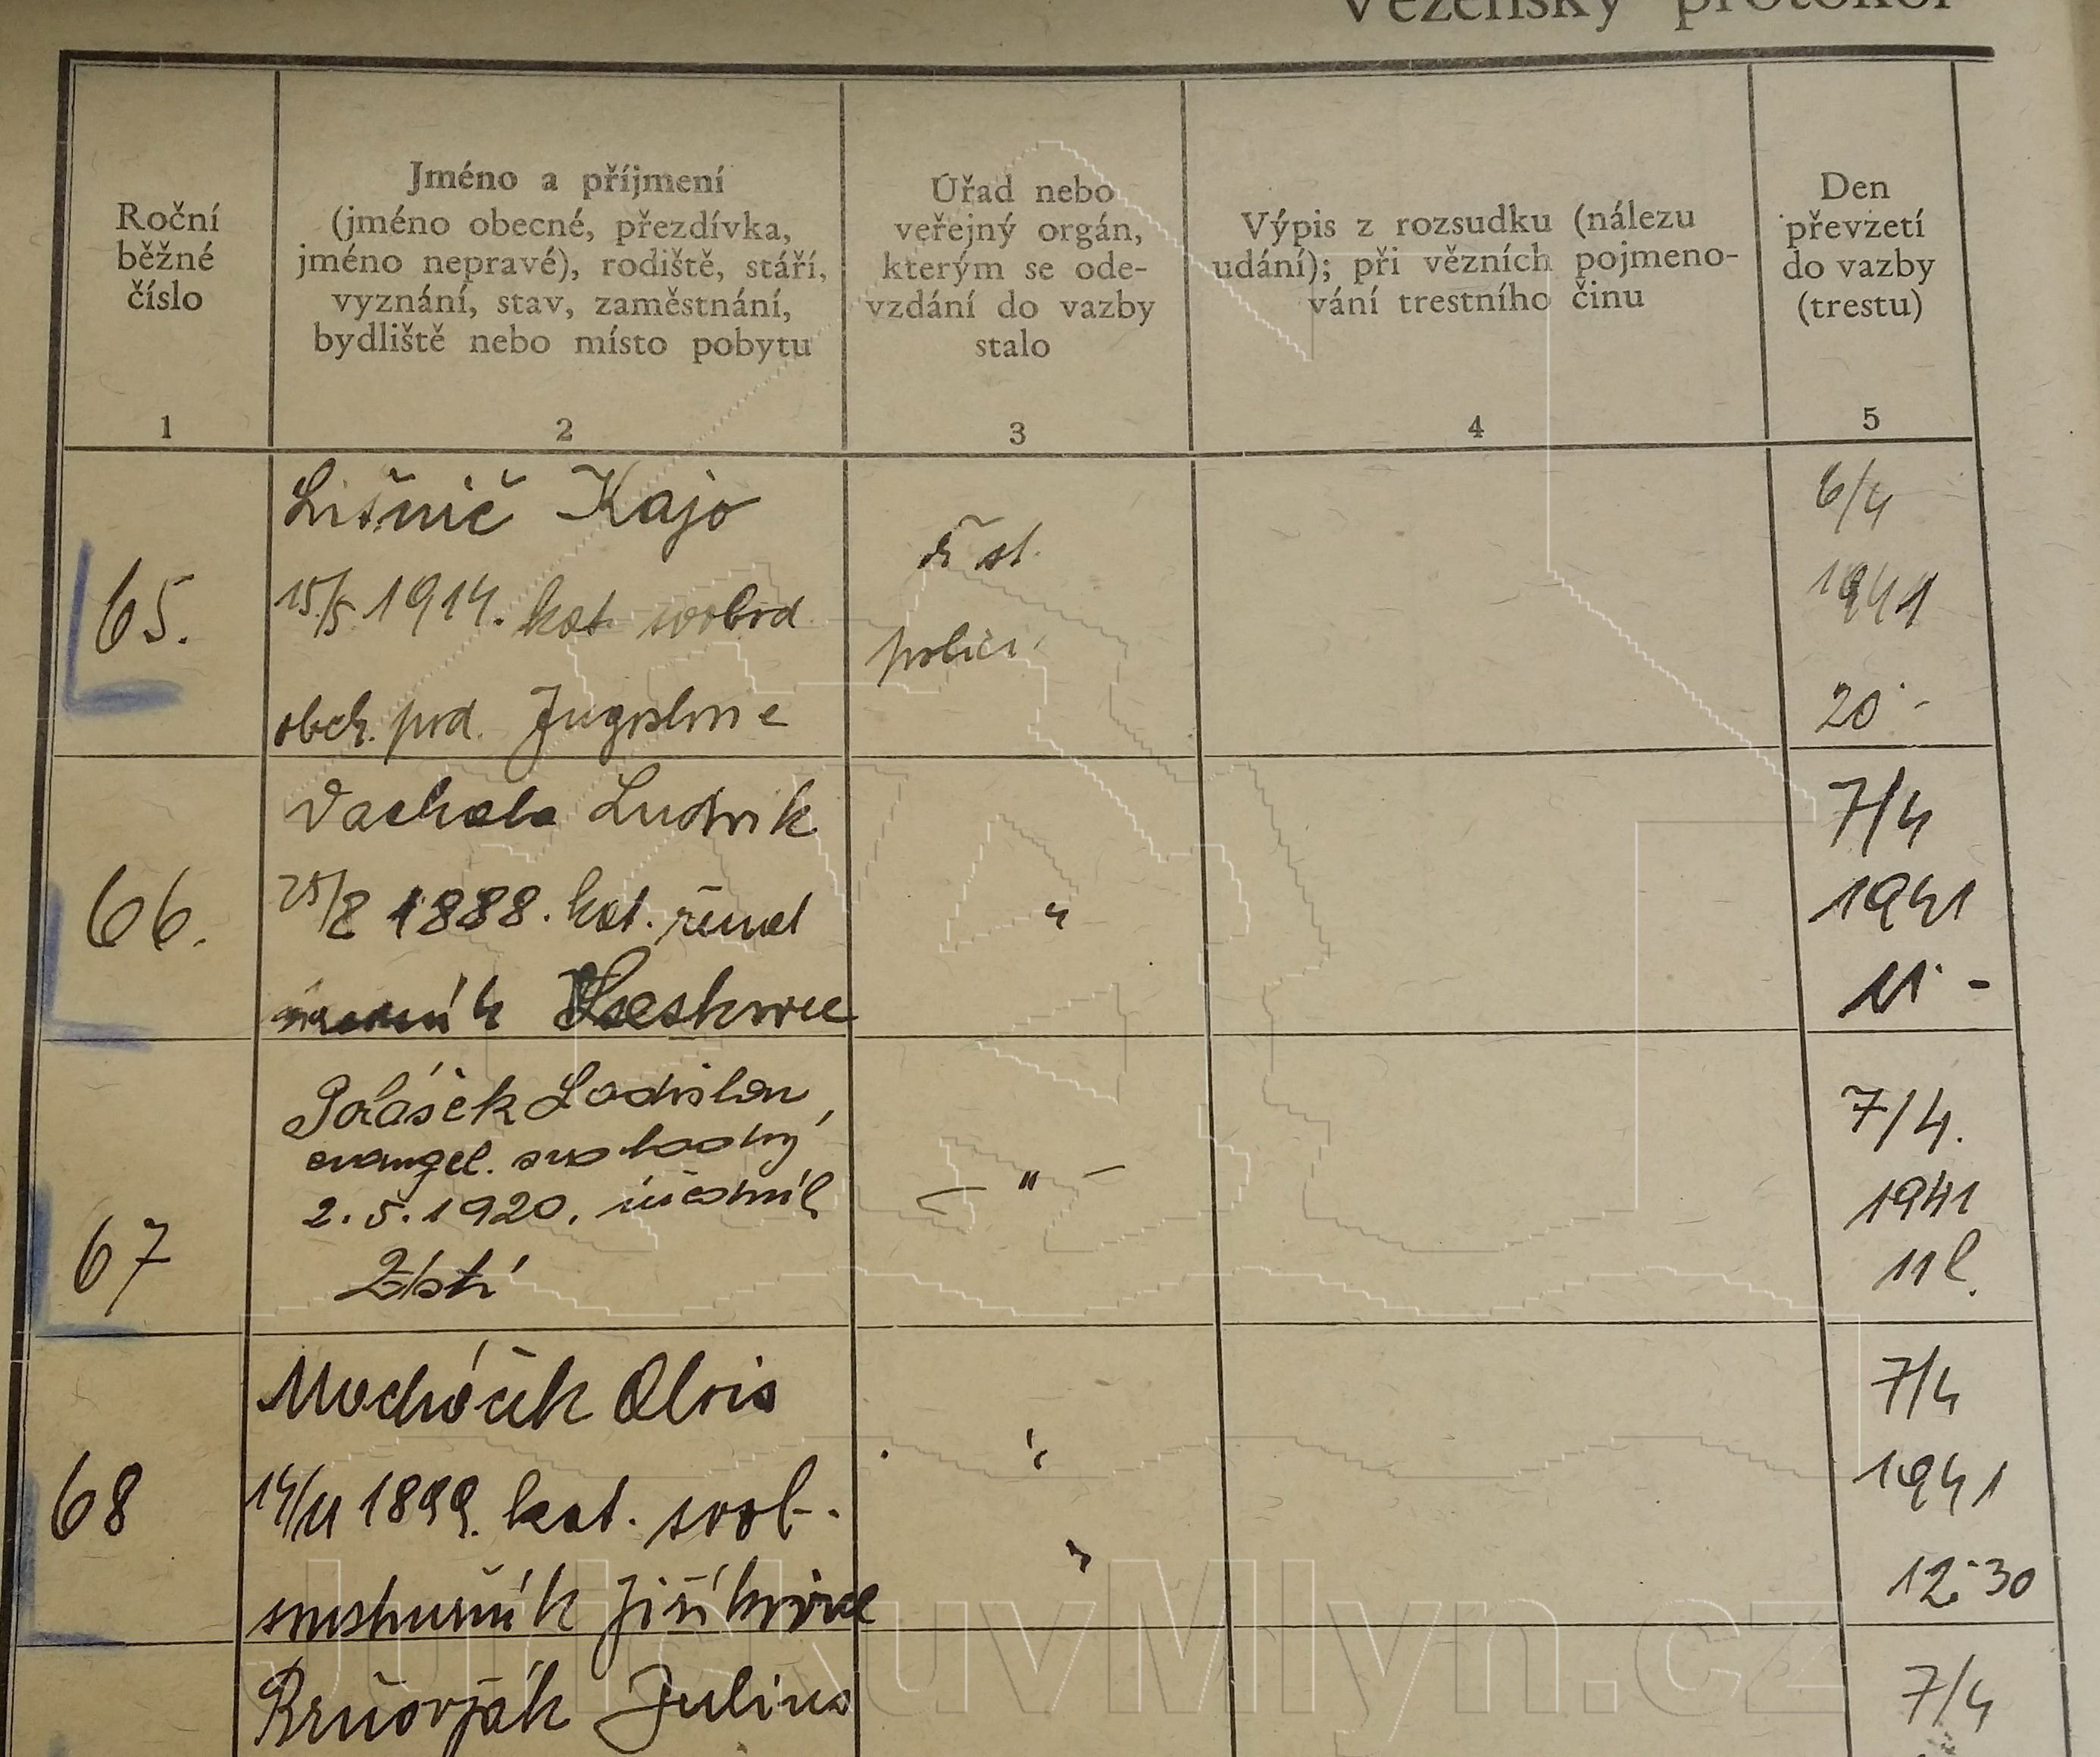 Vězeňský protokol
Roční
běžné
číslo
1
Jméno a příjmení
(jméno obecné, přezdívka,
jméno nepravé), rodiště, stáří,
vyznání, stav, zaměstnání,
bydliště nebo místo pobytu
2
Úřad nebo
veřejný orgán,
kterým se ode-
vzdání do vazby
stalo
3
Výpis z rozsudku (nálezu
udání); při vězních pojmeno-
vání trestního činu
4
Den
převzetí
do vazby
(trestu)
5
65.
Lišnič Kajo
15/5 1914. kat. svobod
obch. Jugoslavie
st.
polici
6/4
1941
20 -
66.
Vachala Ludvik
25/8 1888. kat. ženat
"
7/4
1941
11 -
67
Polášek Ladislav,
evangel. svobodný
2.5.1920, úředník
- " -
7/4.
1941
11 h.
68
Alois
14/11 1899. kat. svob.
Jiříkovice
"
"
7/4
1941
12.30
Julius
7/4
JurickuvMlyn.cz